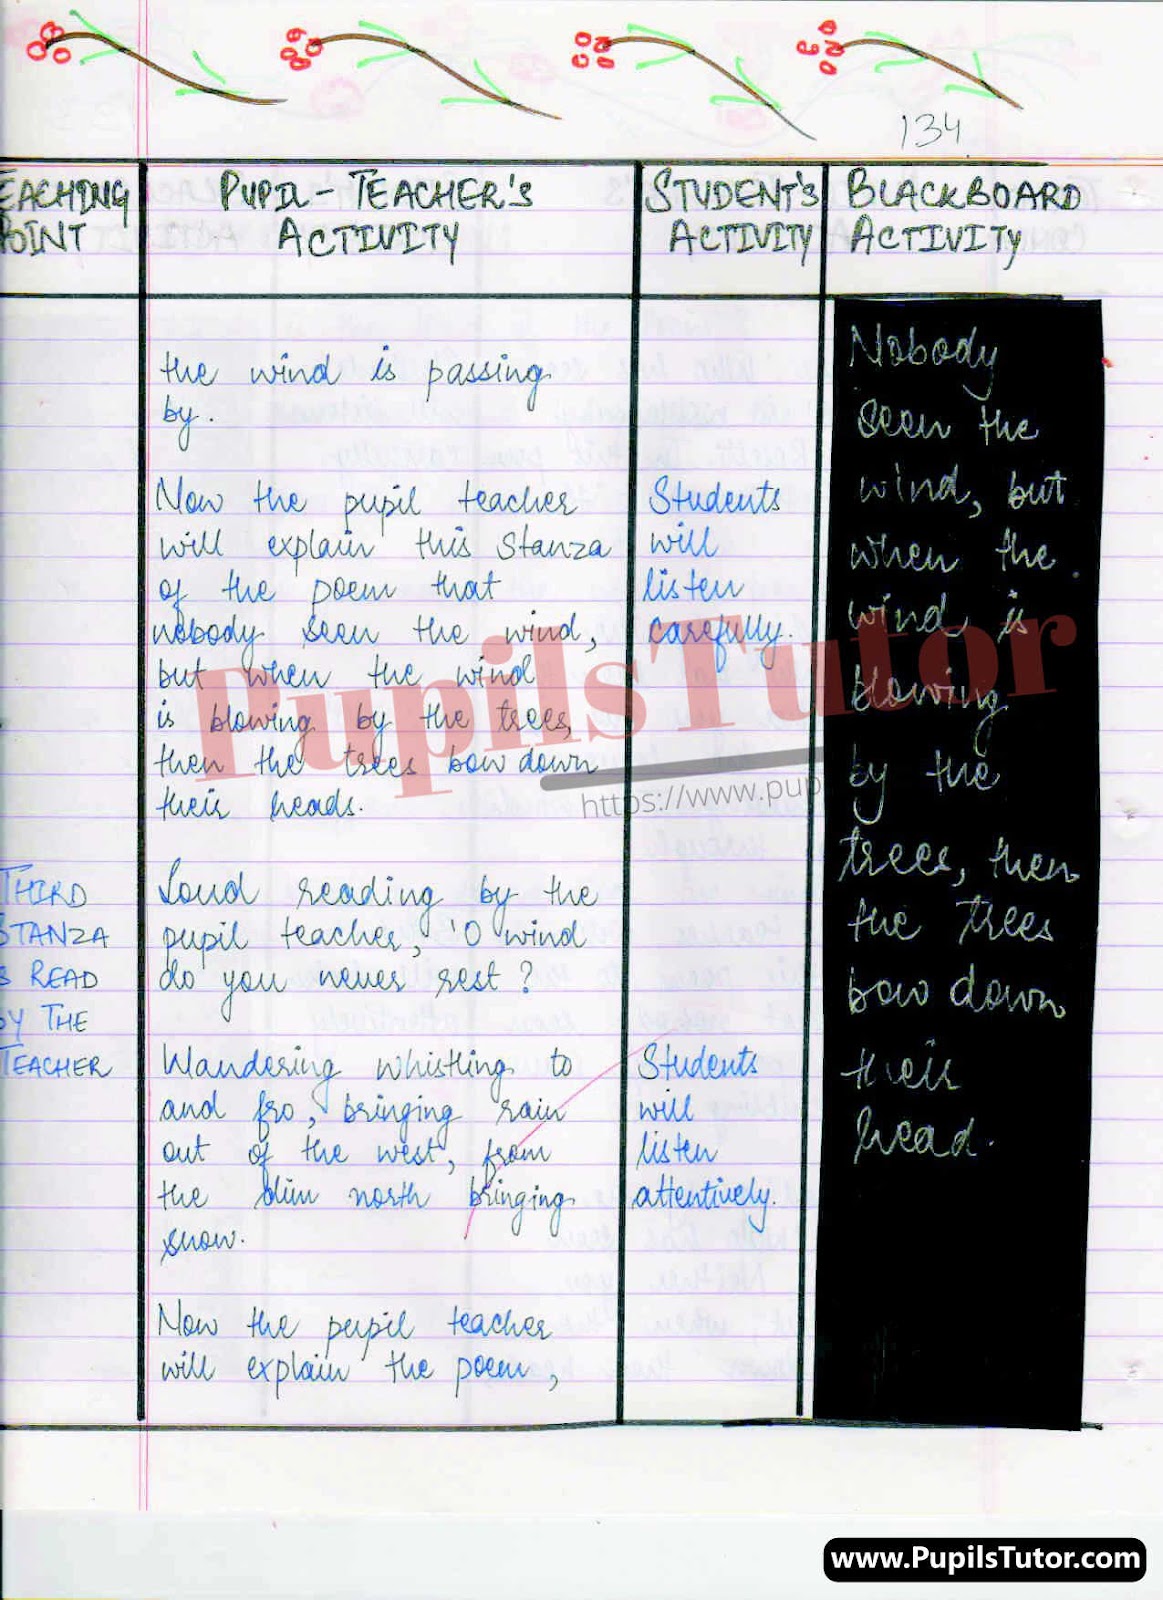 134
EACHING
OINT
PUPIL-TEACHER'S
ACTIVITY
STUDENT'S
ACTIVITY
BLACKBOARD
ACTIVITY
the wind is passing
by.
Now the pupil teacher
will explain this stanza
of the poem that
nobody seen the wind,
but when the wind
is blowing by the trees,
then the trees bow down
their heads.
Students
will
listen
carefully.
THIRD
STANZA
S READ
BY THE
TEACHER
Loud reading by the
pupil teacher, 'O wind
do you never rest?
Wandering whistling to
and fro, bringing rain
out of the west, from
the dim north bringing
snow.
Students
will
listen
attentively.
Now the pupil teacher
will explain the poem,
Nobody
seen the
wind, but
when the
wind is
blowing
by the
trees, then
the trees
bow down
their
head.
PupilsTutor
https://www.pup
www.PupilsTutor.com